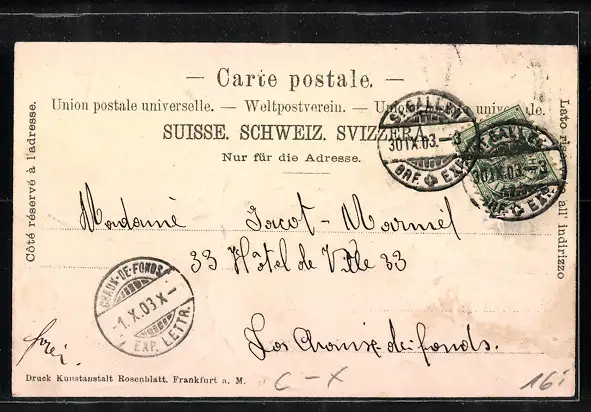 — Carte postale. —
Union postale universelle. — Weltpostverein. — Unione postale universale.
SUISSE. SCHWEIZ. SVIZZERA.
Nur für die Adresse.
Côté réservé à l'adresse.
Lato riservato all' indirizzo
ST. GALLEN
30 IX.03.–3
BRF. EXP.
ST. GALLEN
30 IX.03.–3
BRF. EXP.
Madame Jacot-Murmel
33 Hôtel de Ville 33
La Chaux de fonds.
CHAUX-DE-FONDS
-1.X.03 X-
EXP. LETTR.
frei.
Druck Kunstanstalt Rosenblatt, Frankfurt a. M.
C – X
16.